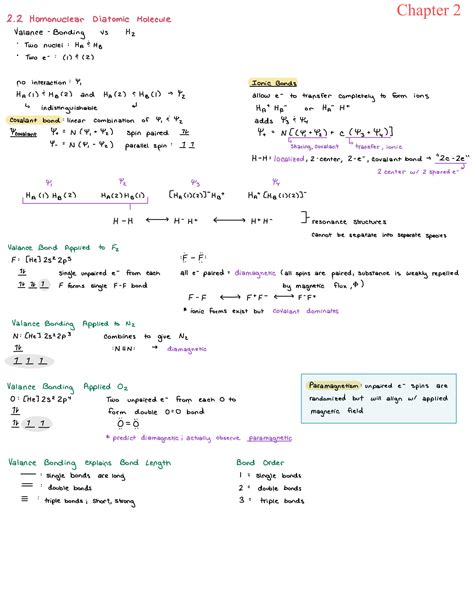 Chapter 2
2.2 Homonuclear Diatomic Molecule
Valance - Bonding vs H₂
· Two nuclei : Hᴀ & Hʙ
· Two e⁻ : (1) & (2)
no interaction : Ψ₁
Hᴀ(1) Hʙ(2) and Hᴀ(2) & Hʙ(1) → Ψ₂
↳ indistinguishable ↲
Covalant bond : linear combination of Ψ₁ & Ψ₂
Ψcovalant Ψ₊ = N(Ψ₁ + Ψ₂) spin paired ↑↓
Ψ₋ = N(Ψ₁ - Ψ₂) parallel spin : 1 1
Ionic Bonds
allow e⁻ to transfer completely to form ions
Hᴀ⁺ Hʙ⁻ or Hᴀ⁻ H⁺
adds Ψ₃ & Ψ₄
Ψ₊ = N[(Ψ₁ + Ψ₂) + c (Ψ₃ + Ψ₄)]
sharing, covalant transfer, ionic
H-H = localized, 2-center, 2-e⁻, covalant bond → "2c-2e"
2 center w/ 2 shared e⁻
Ψ₁ Ψ₂ Ψ₃ Ψ₄
Hᴀ(1) Hʙ(2) Hᴀ(2) Hʙ(1) [Hᴀ(1)(2)]⁻Hʙ⁺ Hᴀ⁺[Hʙ(1)(2)]⁻
H-H ⟷ H⁻H⁺ ⟷ H⁺H⁻ resonance structures
cannot be separate into separate species
Valance Bond Applied to F₂
F : [He] 2s² 2p⁵
↑↓ single unpaired e⁻ from each
↑↓ ↑↓ 1 F forms single F-F bond
:F̈ - F̈:
all e⁻ paired = diamagnetic (all spins are paired, substance is weakly repelled
by magnetic flux, Φ)
F-F ⟷ F⁺F⁻ ⟷ F⁻F⁺
* ionic forms exist but covalant dominates
Valance Bonding Applied to N₂
N : [He] 2s² 2p³ combines to give N₂
↑↓ :N≡N: → diamagnetic
1 1 1
Valance Bonding Applied O₂
O : [He] 2s² 2p⁴ Two unpaired e⁻ from each O to
↑↓ form double O=O bond
↑↓ 1 1 Ö=Ö
* predict diamagnetic ; actually observe paramagnetic
Paramagnetism : unpaired e⁻ spins are
randomized but will align w/ applied
magnetic field
Valance Bonding explains Bond Length
— : single bonds are long
= : double bonds
≡ : triple bonds ; short, strong
Bond Order
1 = single bonds
2 = double bonds
3 = triple bonds